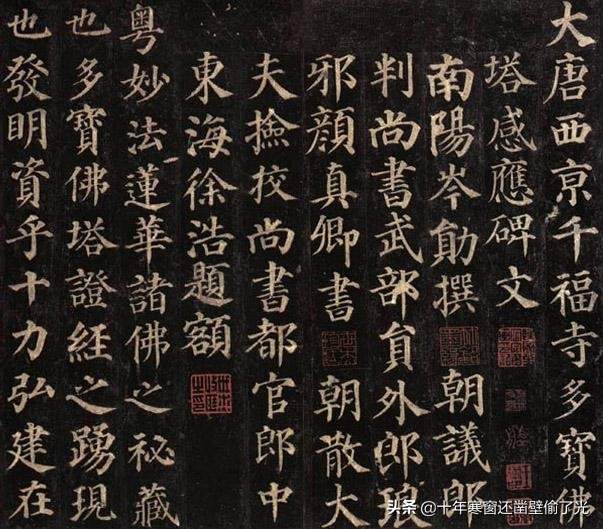 大唐西京千福寺多寶佛
塔感應碑文
南陽岑勛撰 朝議郎
判尚書武部員外郎琅
邪顏真卿書 朝散大
夫撿挍尚書都官郎中
東海徐浩題額
粵妙法蓮華諸佛之祕藏
也多寶佛塔證經之踴現
也發明資乎十力弘建在
头条 @十年寒窗还凿壁偷了光